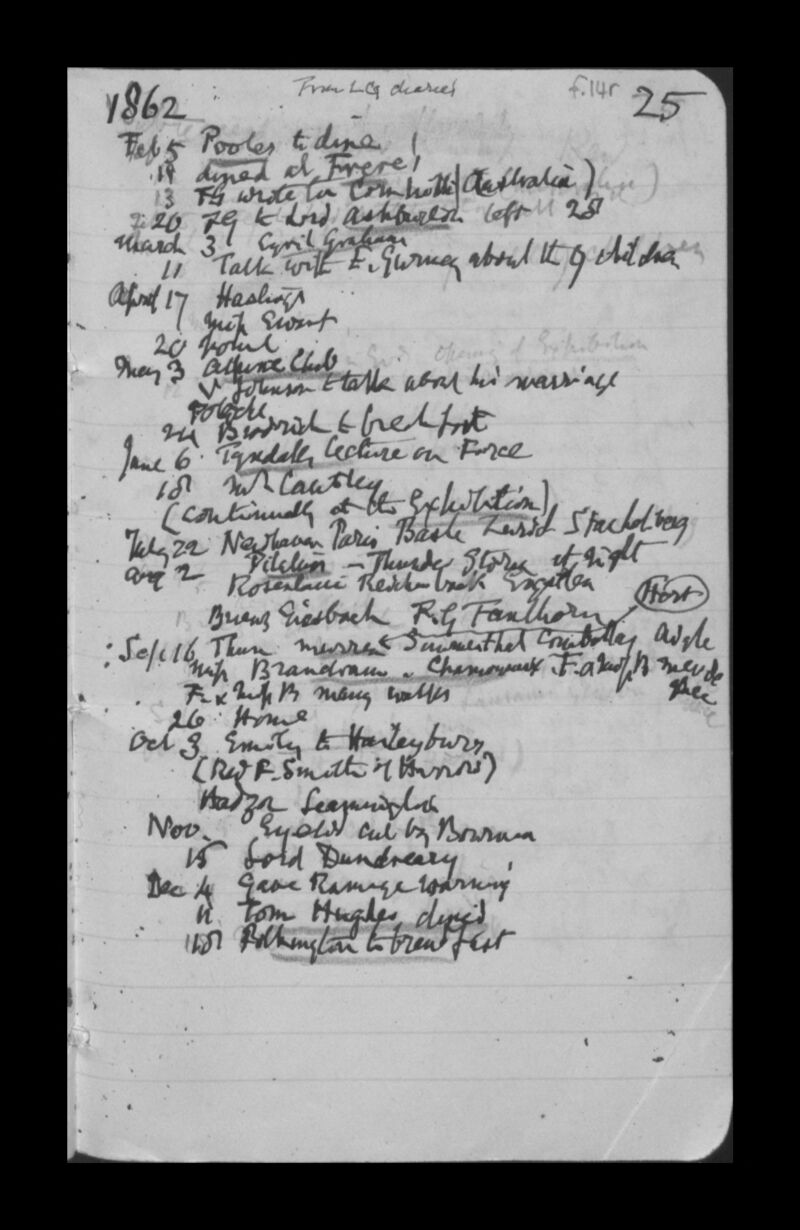 From LG diaries f.14r
1862 25
Feb 5 Pooles to dine
14 dined at Frere's
13 FG wrote for Cornhill (Australia)
20 FG to Lord Ashburton left 28
March 3 Cyril Graham
11 Talk with E. Gurney about the children
April 17 Hastings
Miss Ewart
20 home
May 3 Alpine Club
Johnson to talk about his marriage
24 Brodrick to breakfast
June 6 Tyndall's lecture on Force
18 Mr Cautley
(continually at the Exhibition)
July 22 Newhaven Paris Basle Zurich Stachelberg
Aug 2 Pilatus - Thunder Storm at night
Rosenlaui Reichenbach Engstlen
Hort
Brienz Giesbach F.G Faulhorn
Sept 16 Thun Murren Simmenthal Aigle
Miss Brandram Chamounix F. a Miss B
F. & Miss B many walks
26 Home
Oct 3 Emily to Haileybury
(Rev F. Smith of Harrow)
Hadzor Leamington
Nov. Eyelid cut by Bowman
15 Lord Dundreary
Dec 4 Gave Ramage warning
11 Tom Hughes dined
18 to breakfast